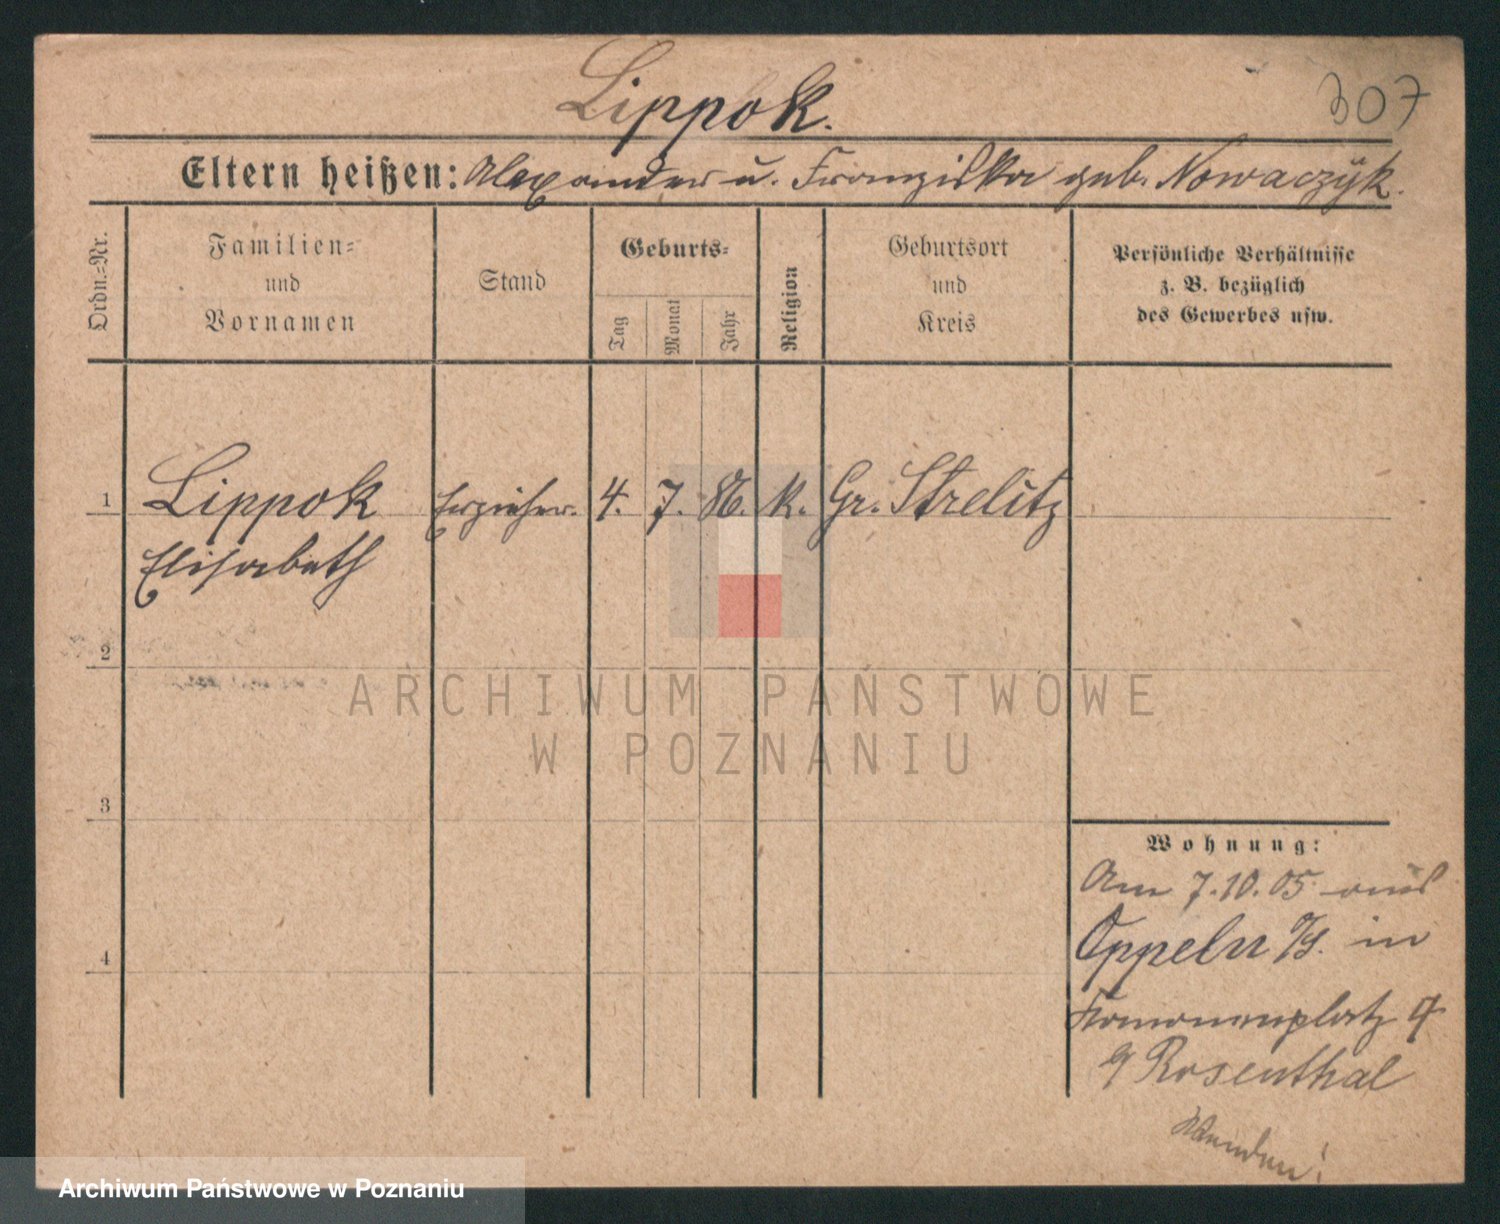 Lippok.
307
Eltern heißen: Alexander u. Franziska geb. Nowaczÿk.
Ordn.=Nr.
Familien=
und
Vornamen
Stand
Geburts=
Tag
Monat
Jahr
Religion
Geburtsort
und
Kreis
Persönliche Verhältnisse
z. B. bezüglich
des Gewerbes usw.
1
Lippok
Elisabeth
Erzieher.
4. 7. 86. k. Gr. Strelitz
2
3
4
Wohnung:
Am 7.10.05 aus
Oppeln O/S. in
Rosenthal
Wenden!
ARCHIWUM PAŃSTWOWE
W POZNANIU
Archiwum Państwowe w Poznaniu